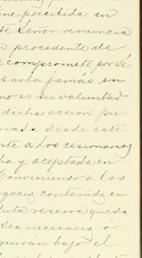 ne percibida en
te Señor renuncia
n procedente de
e compromete por sí
sarla jamás en
no es su voluntad
dicha accion pu
nada desde este
nte á los cesionarios
ha y aceptada en
Conveniendo á los
negocios contenida en
luta reserva queda
sea necesario, o
puran bajo el